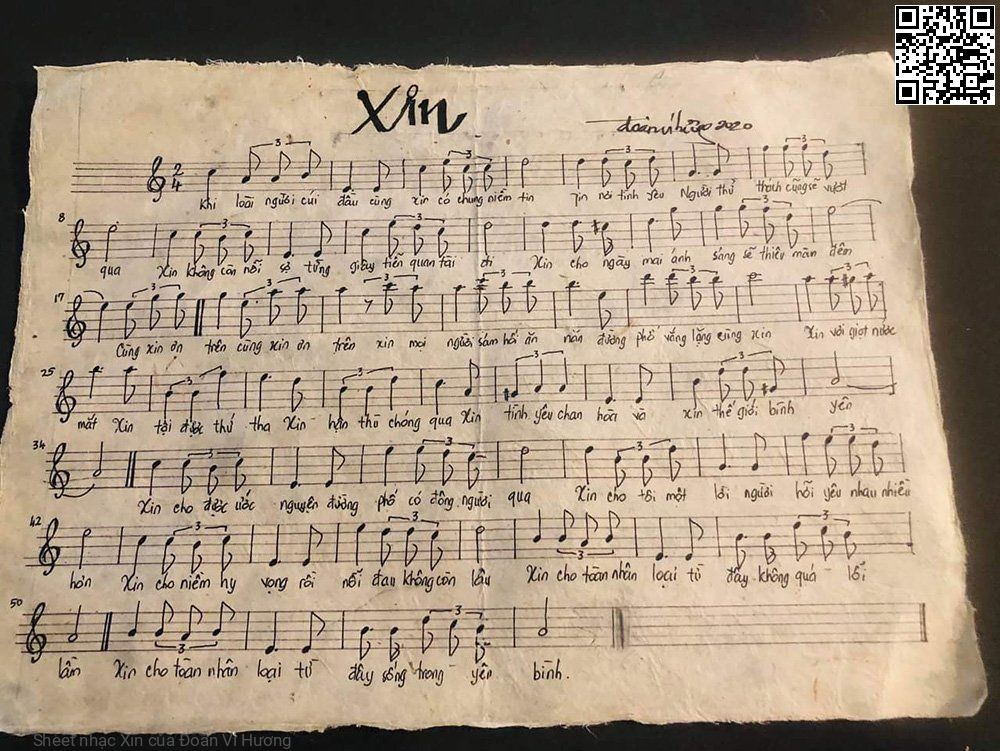 Xin
Đoàn Vi Hương 2020
2 4
3 3 3 3
Khi loài người cúi đầu cùng xin có chung niềm tin Tin nơi tình yêu Người thử thách cũng sẽ vượt
8
3 3 3 3
qua Xin không còn nỗi sợ từng giây tiễn quan tài đi Xin cho ngày mai ánh sáng sẽ thiêu màn đêm
17
Cùng xin ơn trên cùng xin ơn trên xin mọi người sám hối ăn năn đường phố vắng lặng cùng xin Xin với giọt nước
25
mắt Xin tội được thứ tha Xin hận thù chóng qua Xin tình yêu chan hòa và xin thế giới bình yên
34
Xin cho được ước nguyện đường phố có đông người qua Xin cho tôi một lời người hỡi yêu nhau nhiều
42
hơn Xin cho niềm hy vọng rồi nỗi đau không còn lâu Xin cho toàn nhân loại từ đây không quá lỗi
50
lầm Xin cho toàn nhân loại từ đây sống trong yên bình.
Sheet nhạc Xin của Đoàn Vi Hương